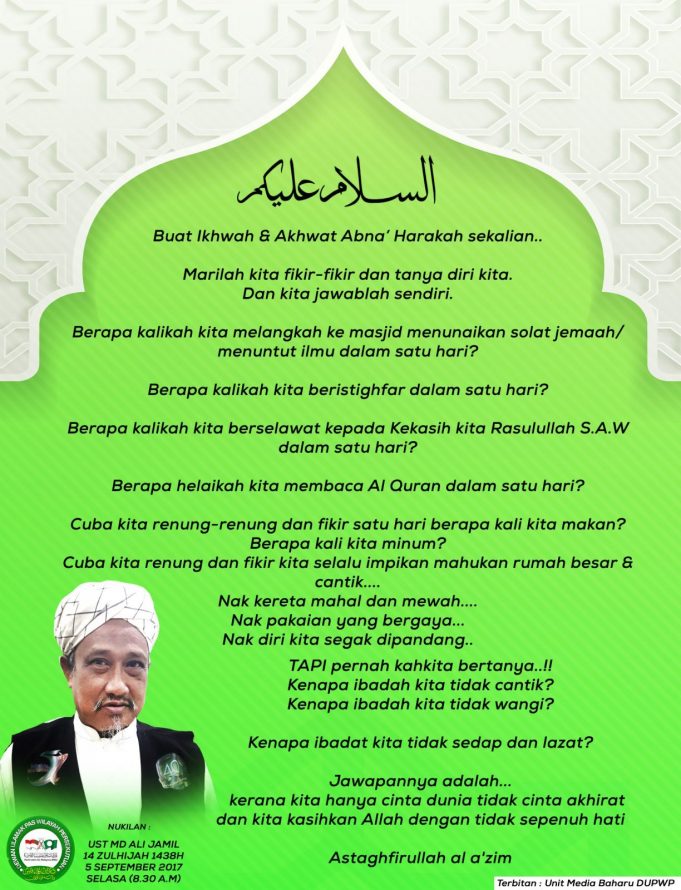 السلام عليكم
Buat Ikhwah & Akhwat Abna’ Harakah sekalian..
Marilah kita fikir-fikir dan tanya diri kita.
Dan kita jawablah sendiri.
Berapa kalikah kita melangkah ke masjid menunaikan solat jemaah/
menuntut ilmu dalam satu hari?
Berapa kalikah kita beristighfar dalam satu hari?
Berapa kalikah kita berselawat kepada Kekasih kita Rasulullah S.A.W
dalam satu hari?
Berapa helaikah kita membaca Al Quran dalam satu hari?
Cuba kita renung-renung dan fikir satu hari berapa kali kita makan?
Berapa kali kita minum?
Cuba kita renung dan fikir kita selalu impikan mahukan rumah besar &
cantik....
Nak kereta mahal dan mewah....
Nak pakaian yang bergaya...
Nak diri kita segak dipandang..
TAPI pernah kahkita bertanya..!!
Kenapa ibadah kita tidak cantik?
Kenapa ibadah kita tidak wangi?
Kenapa ibadat kita tidak sedap dan lazat?
Jawapannya adalah...
kerana kita hanya cinta dunia tidak cinta akhirat
dan kita kasihkan Allah dengan tidak sepenuh hati
Astaghfirullah al a'zim
DEWAN ULAMAK PAS WILAYAH PERSEKUTUAN
NUKILAN :
UST MD ALI JAMIL
14 ZULHIJAH 1438H
5 SEPTEMBER 2017
SELASA (8.30 A.M)
Terbitan : Unit Media Baharu DUPWP